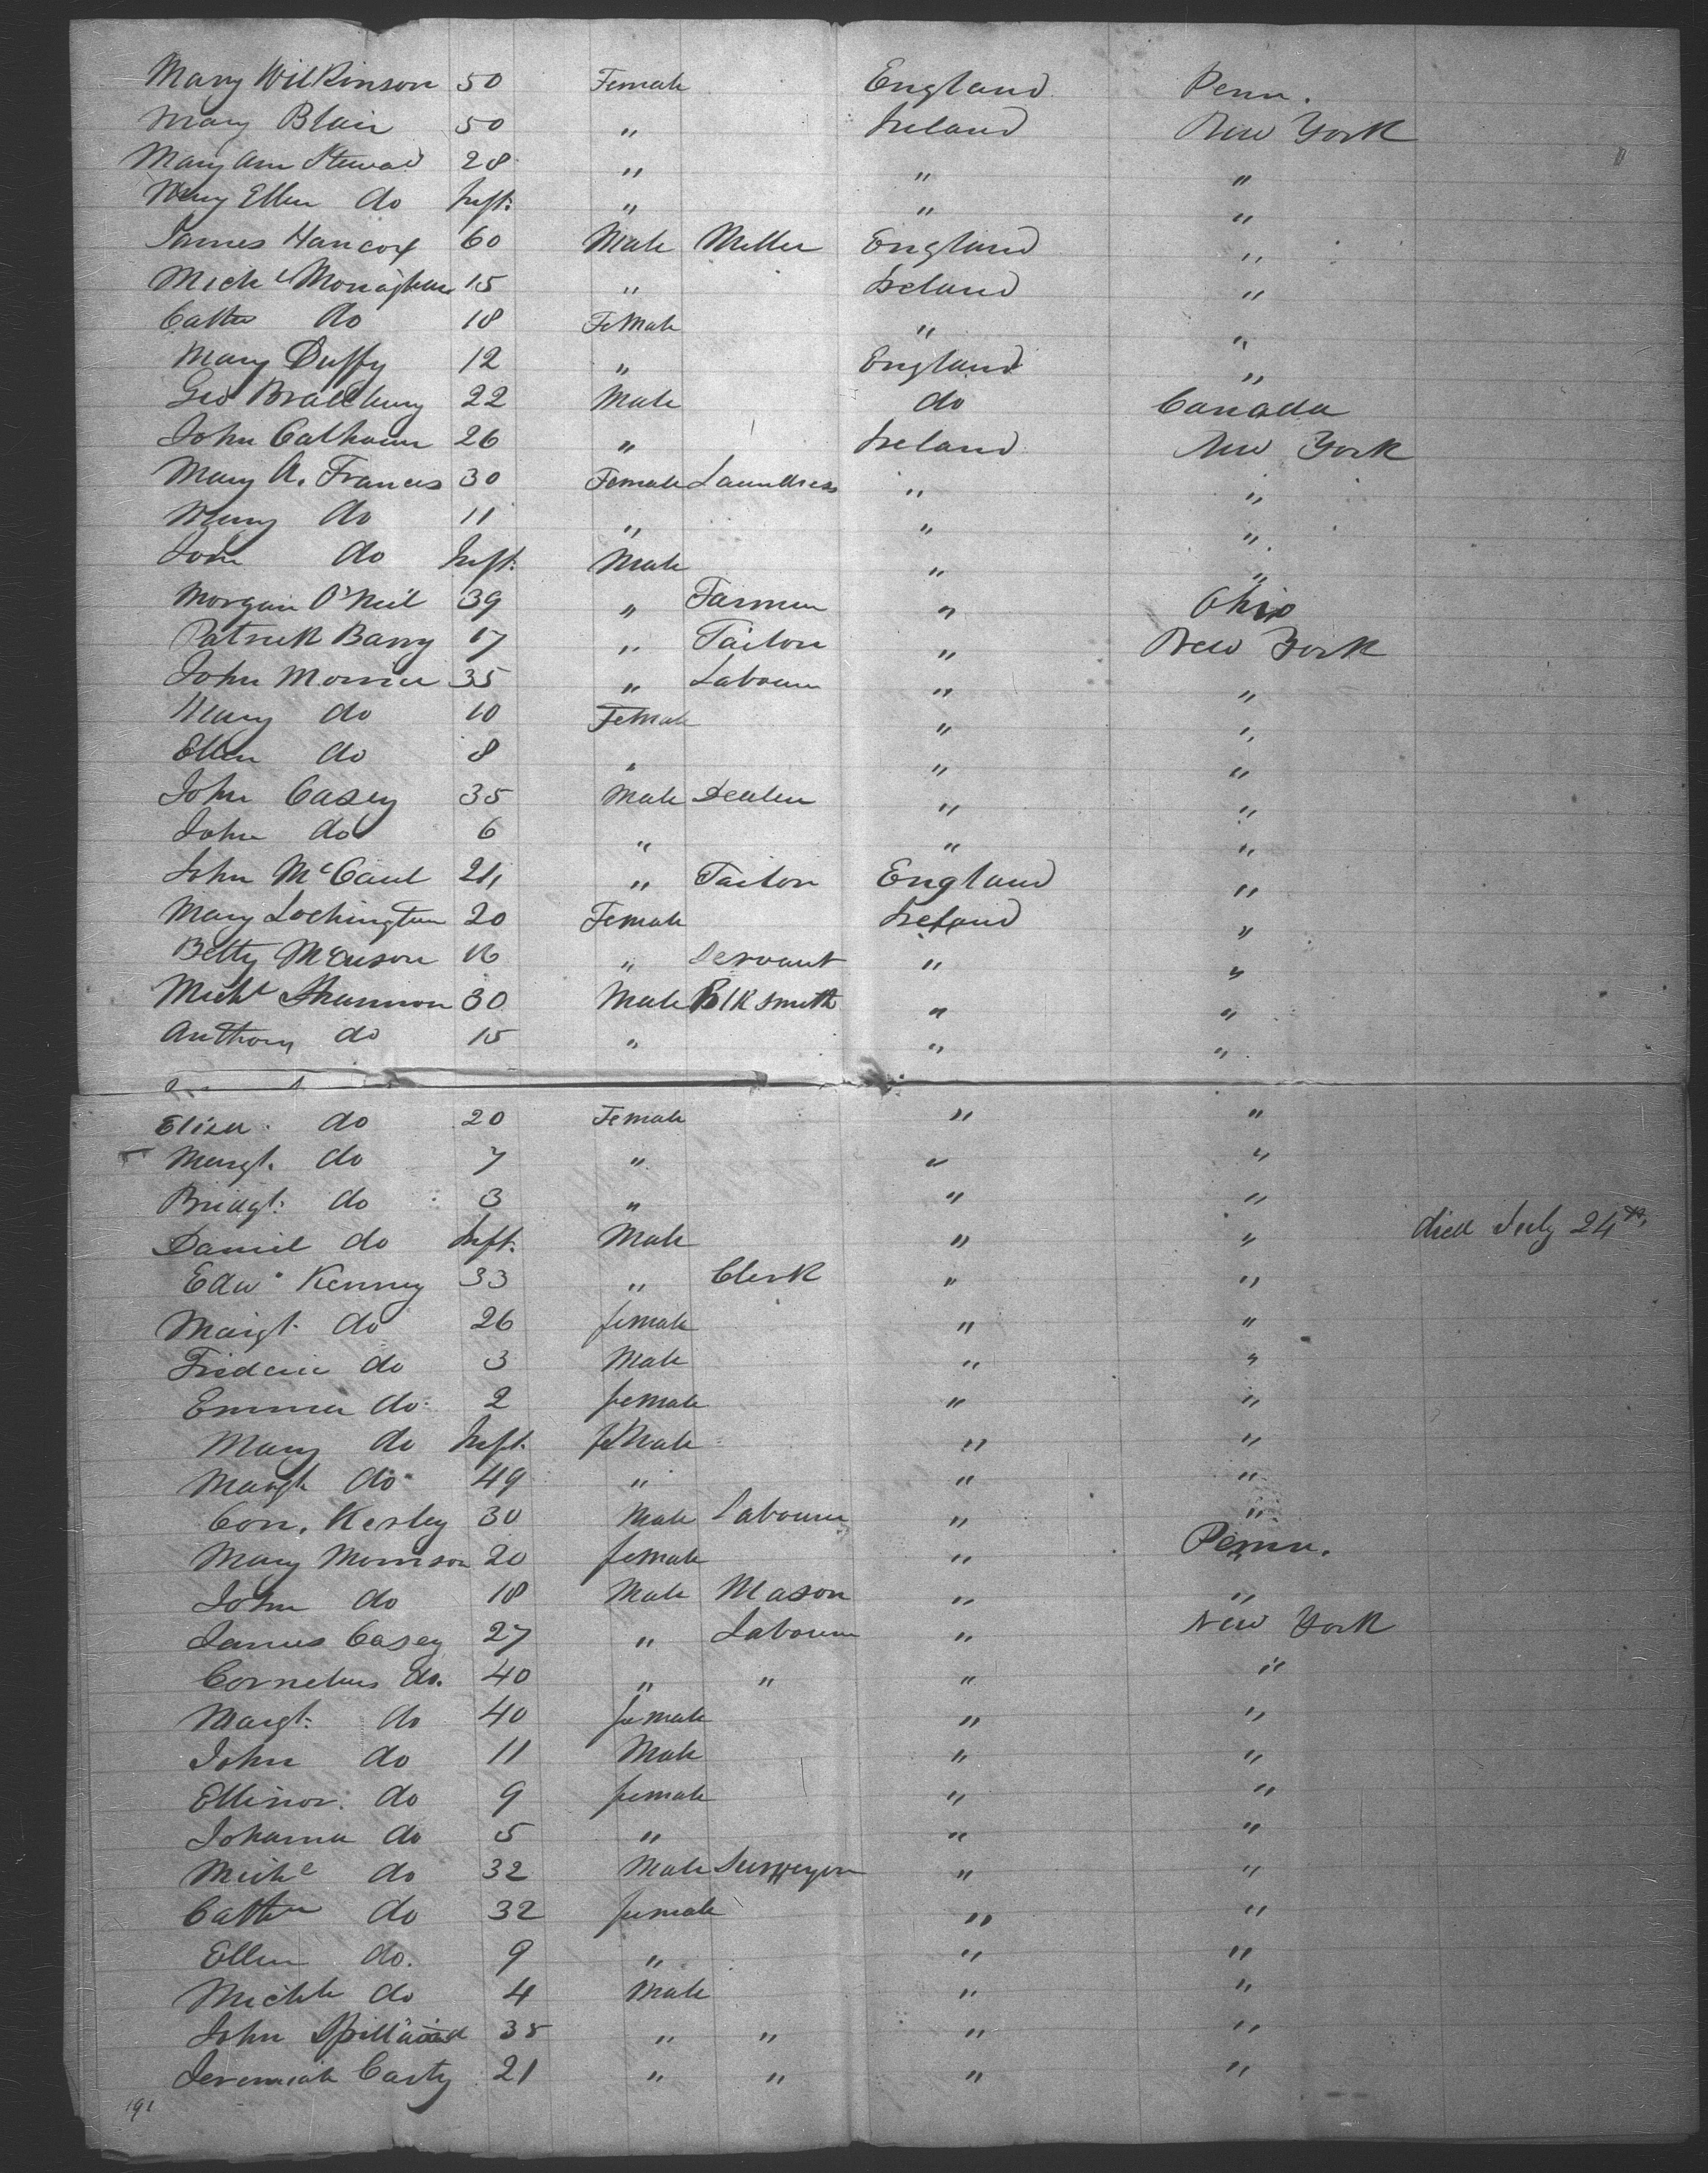 Mary Wilkinson 50 Female England Penn.
Mary Blair 50 " Ireland New York
Mary Ann Steward 28 " " "
Mary Ellen do Inft. " " "
James Hancox 60 Male Miller England "
Michl Monaghan 15 " Ireland "
Cathe do 18 Female " "
Mary Duffy 12 " England "
Geo Bradbury 22 Male do Canada
John Calhoun 26 " Ireland New York
Mary A. Francis 30 Female Laundress " "
Mary do 11 " " "
John do Inft. Male " "
Morgan O'Neil 39 " Farmer " Ohio
Patrick Barry 17 " Tailor " New York
John 35 " Labourer " "
Mary do 10 Female " "
Ellen do 8 " " "
John Casey 35 Male Dealer " "
John do 6 " " "
John McCaul 21 " Tailor England "
Mary Lochington 20 Female Ireland "
Betty 16 " Servant " "
Michl Shannon 30 Male Blksmith " "
Anthony do 15 " " "
Eliza do 20 Female " "
Margt. do 7 " " "
Bridgt. do 3 " " "
Daniel do Inft. Male " " died July 24th
Edwd Kenney 33 " Clerk " "
Margt. do 26 female " "
Frederic do 3 Male " "
Emma do 2 female " "
Mary do Inft. feMale " "
Margt do 49 " " "
Con. Kerley 30 Male Labourer " "
Mary Morrison 20 female " Penn.
John do 18 Male Mason " "
James Casey 27 " Labourer " New York
Cornelius do. 40 " " " "
Margt. do 40 female " "
John do 11 Male " "
Ellinor. do 9 female " "
Johanna do 5 " " "
Michl do 32 Male Surveyor " "
Cathn do 32 female " "
Ellen do. 9 " " "
Michl do 4 Male " "
John 35 " " " "
Jeremiah Carty 21 " " " "
191